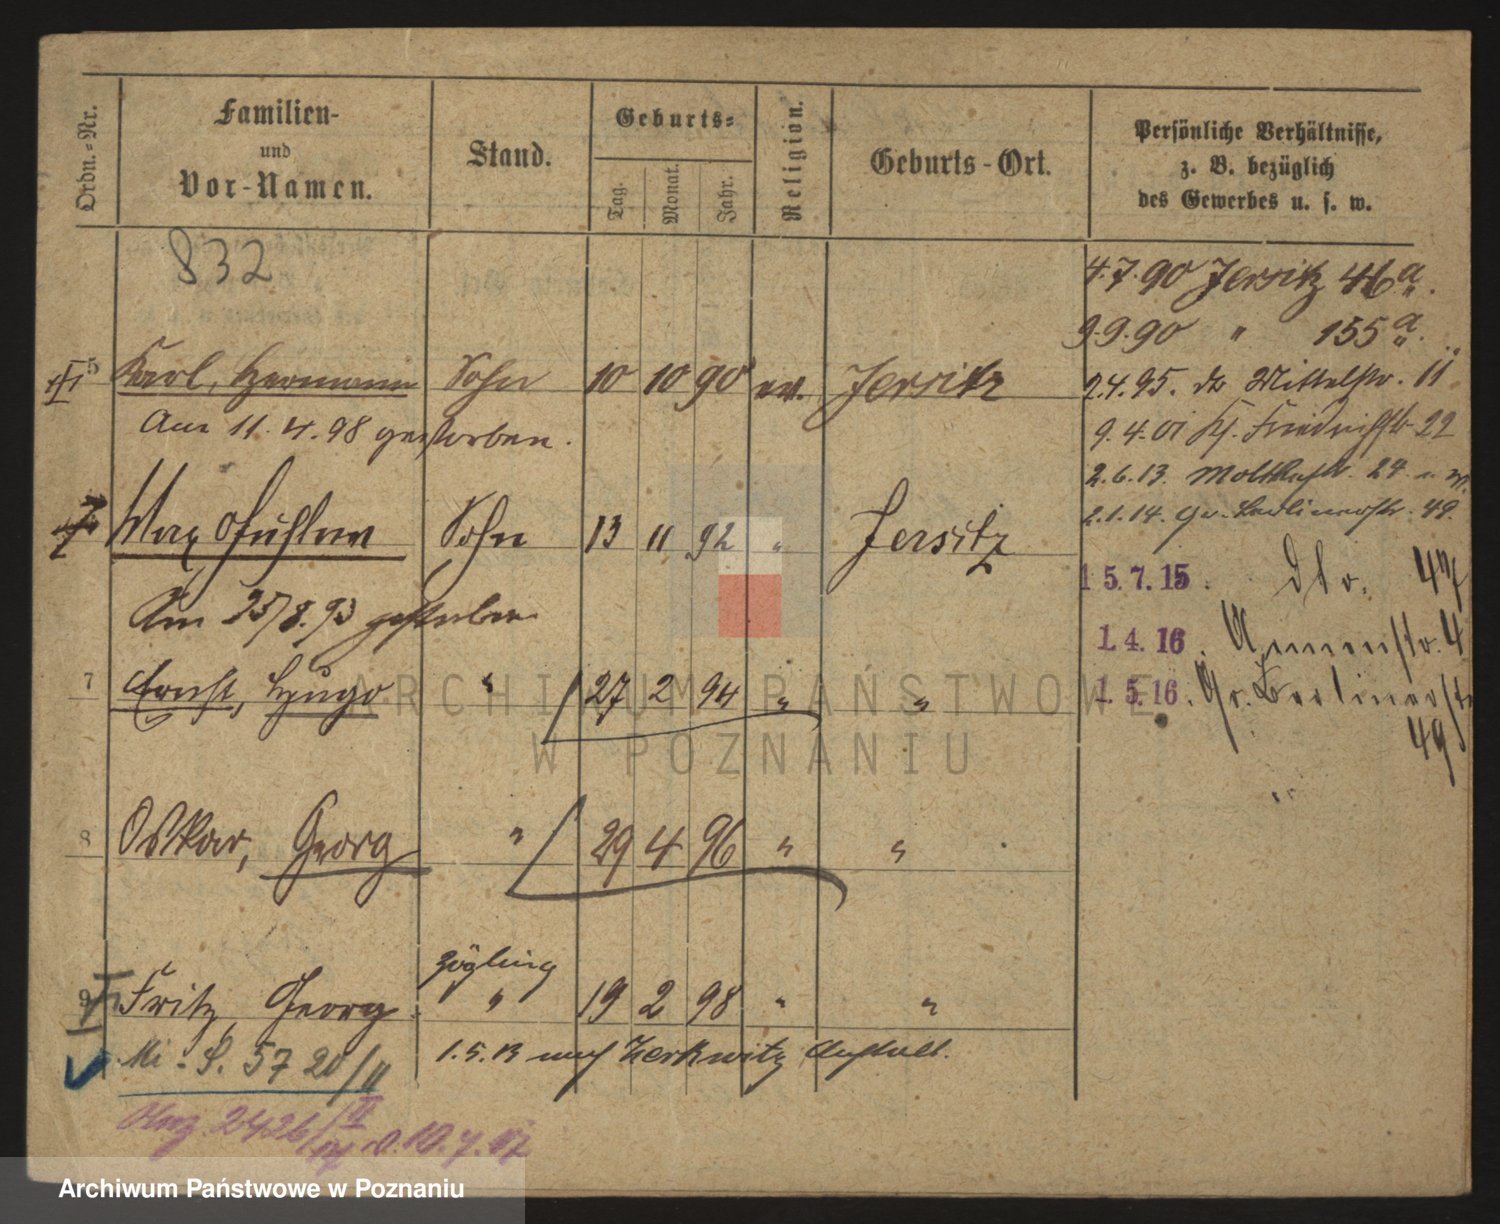 Ordn.-Nr.
Familien-
und
Vor-Namen.
Stand.
Geburts-
Tag.
Monat.
Jahr.
Religion.
Geburts-Ort.
Persönliche Verhältnisse,
z. B. bezüglich
des Gewerbes u. s. w.
832
4.7.90 Jersitz 46a.
9.9.90 " 155a.
5 Karl, Hermann Sohn 10 10 90 ev. Jersitz
2.4.95. do Mittelstr. 11
Am 11.4.98 gestorben.
9.4.01 Kl. Friedrichstr 22
2.6.13. Moltkestr. 24
2.1.14. Gr. Berlinerstr. 49.
Max Sohn 13 11 92 " Jersitz
15.7.15. dto. 47
Am 25/8.93 gestorben
1.4.16. 4
7 Ernst, Hugo " 27 2 94 " "
1.5.16. Gr. Berlinerstr
49
ARCHIWUM PAŃSTWOWE
W POZNANIU
8 Oskar, Georg " 29 4 96 " "
Zögling
9 Fritz, Georg " 19 2 98 " "
57 20/II
1.5.13 nach Zerkwitz Anstalt.
2426 10.7.17
Archiwum Państwowe w Poznaniu